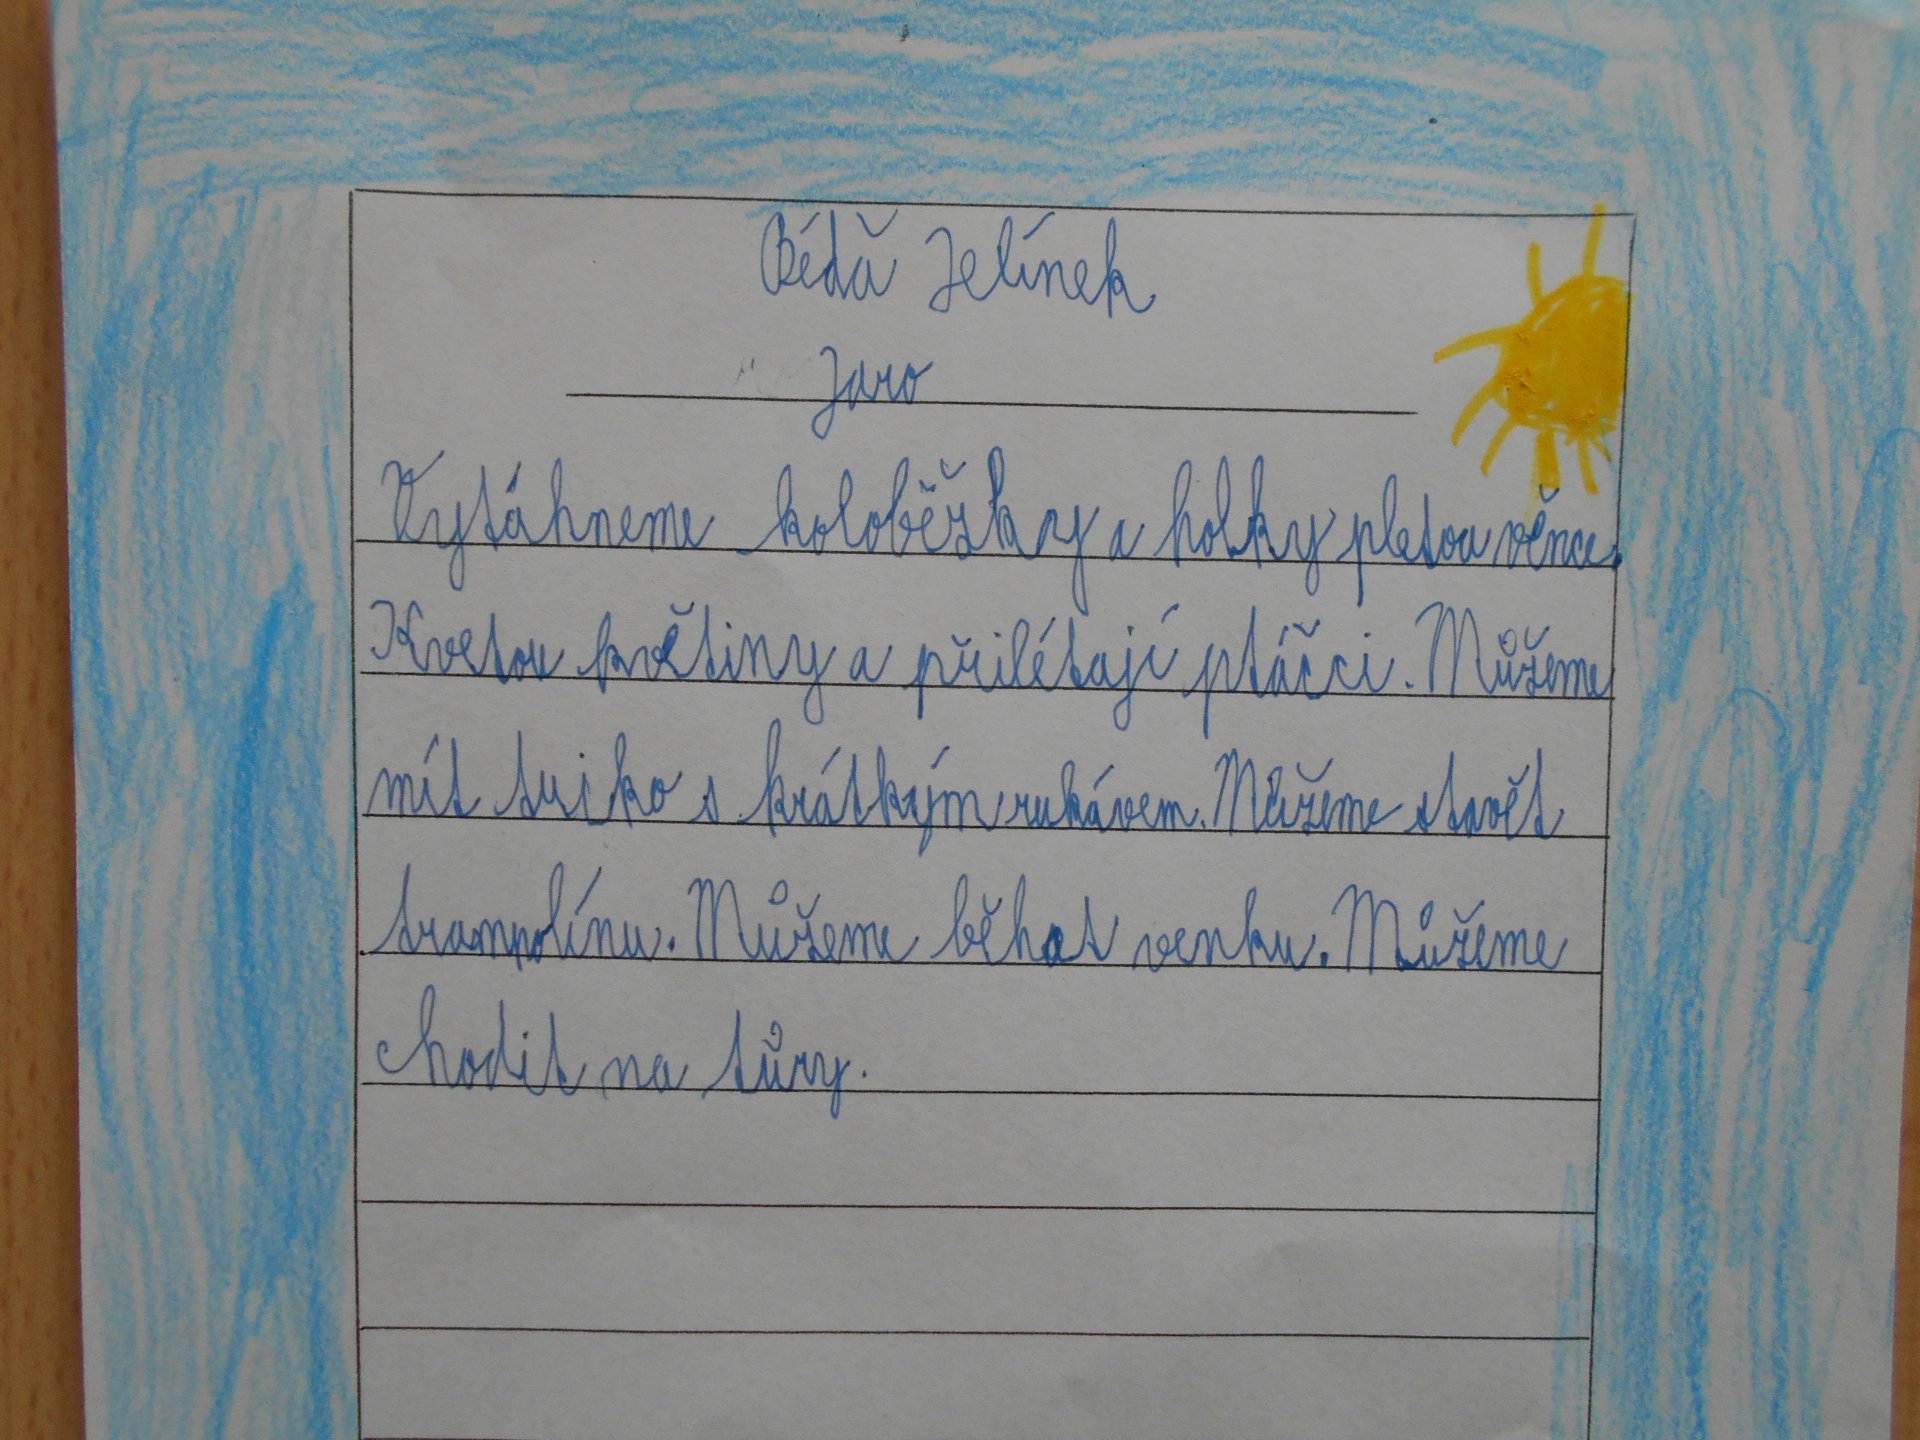 Bíďa Jelínek
Jaro
Vytáhneme koloběžky a holky pletou věnce.
Kvetou květiny a přilétají ptáčci. Můžeme
mít tricko s krátkým rukávem. Můžeme stavět
trampolínu. Můžeme běhat venku. Můžeme
chodit na tůry.